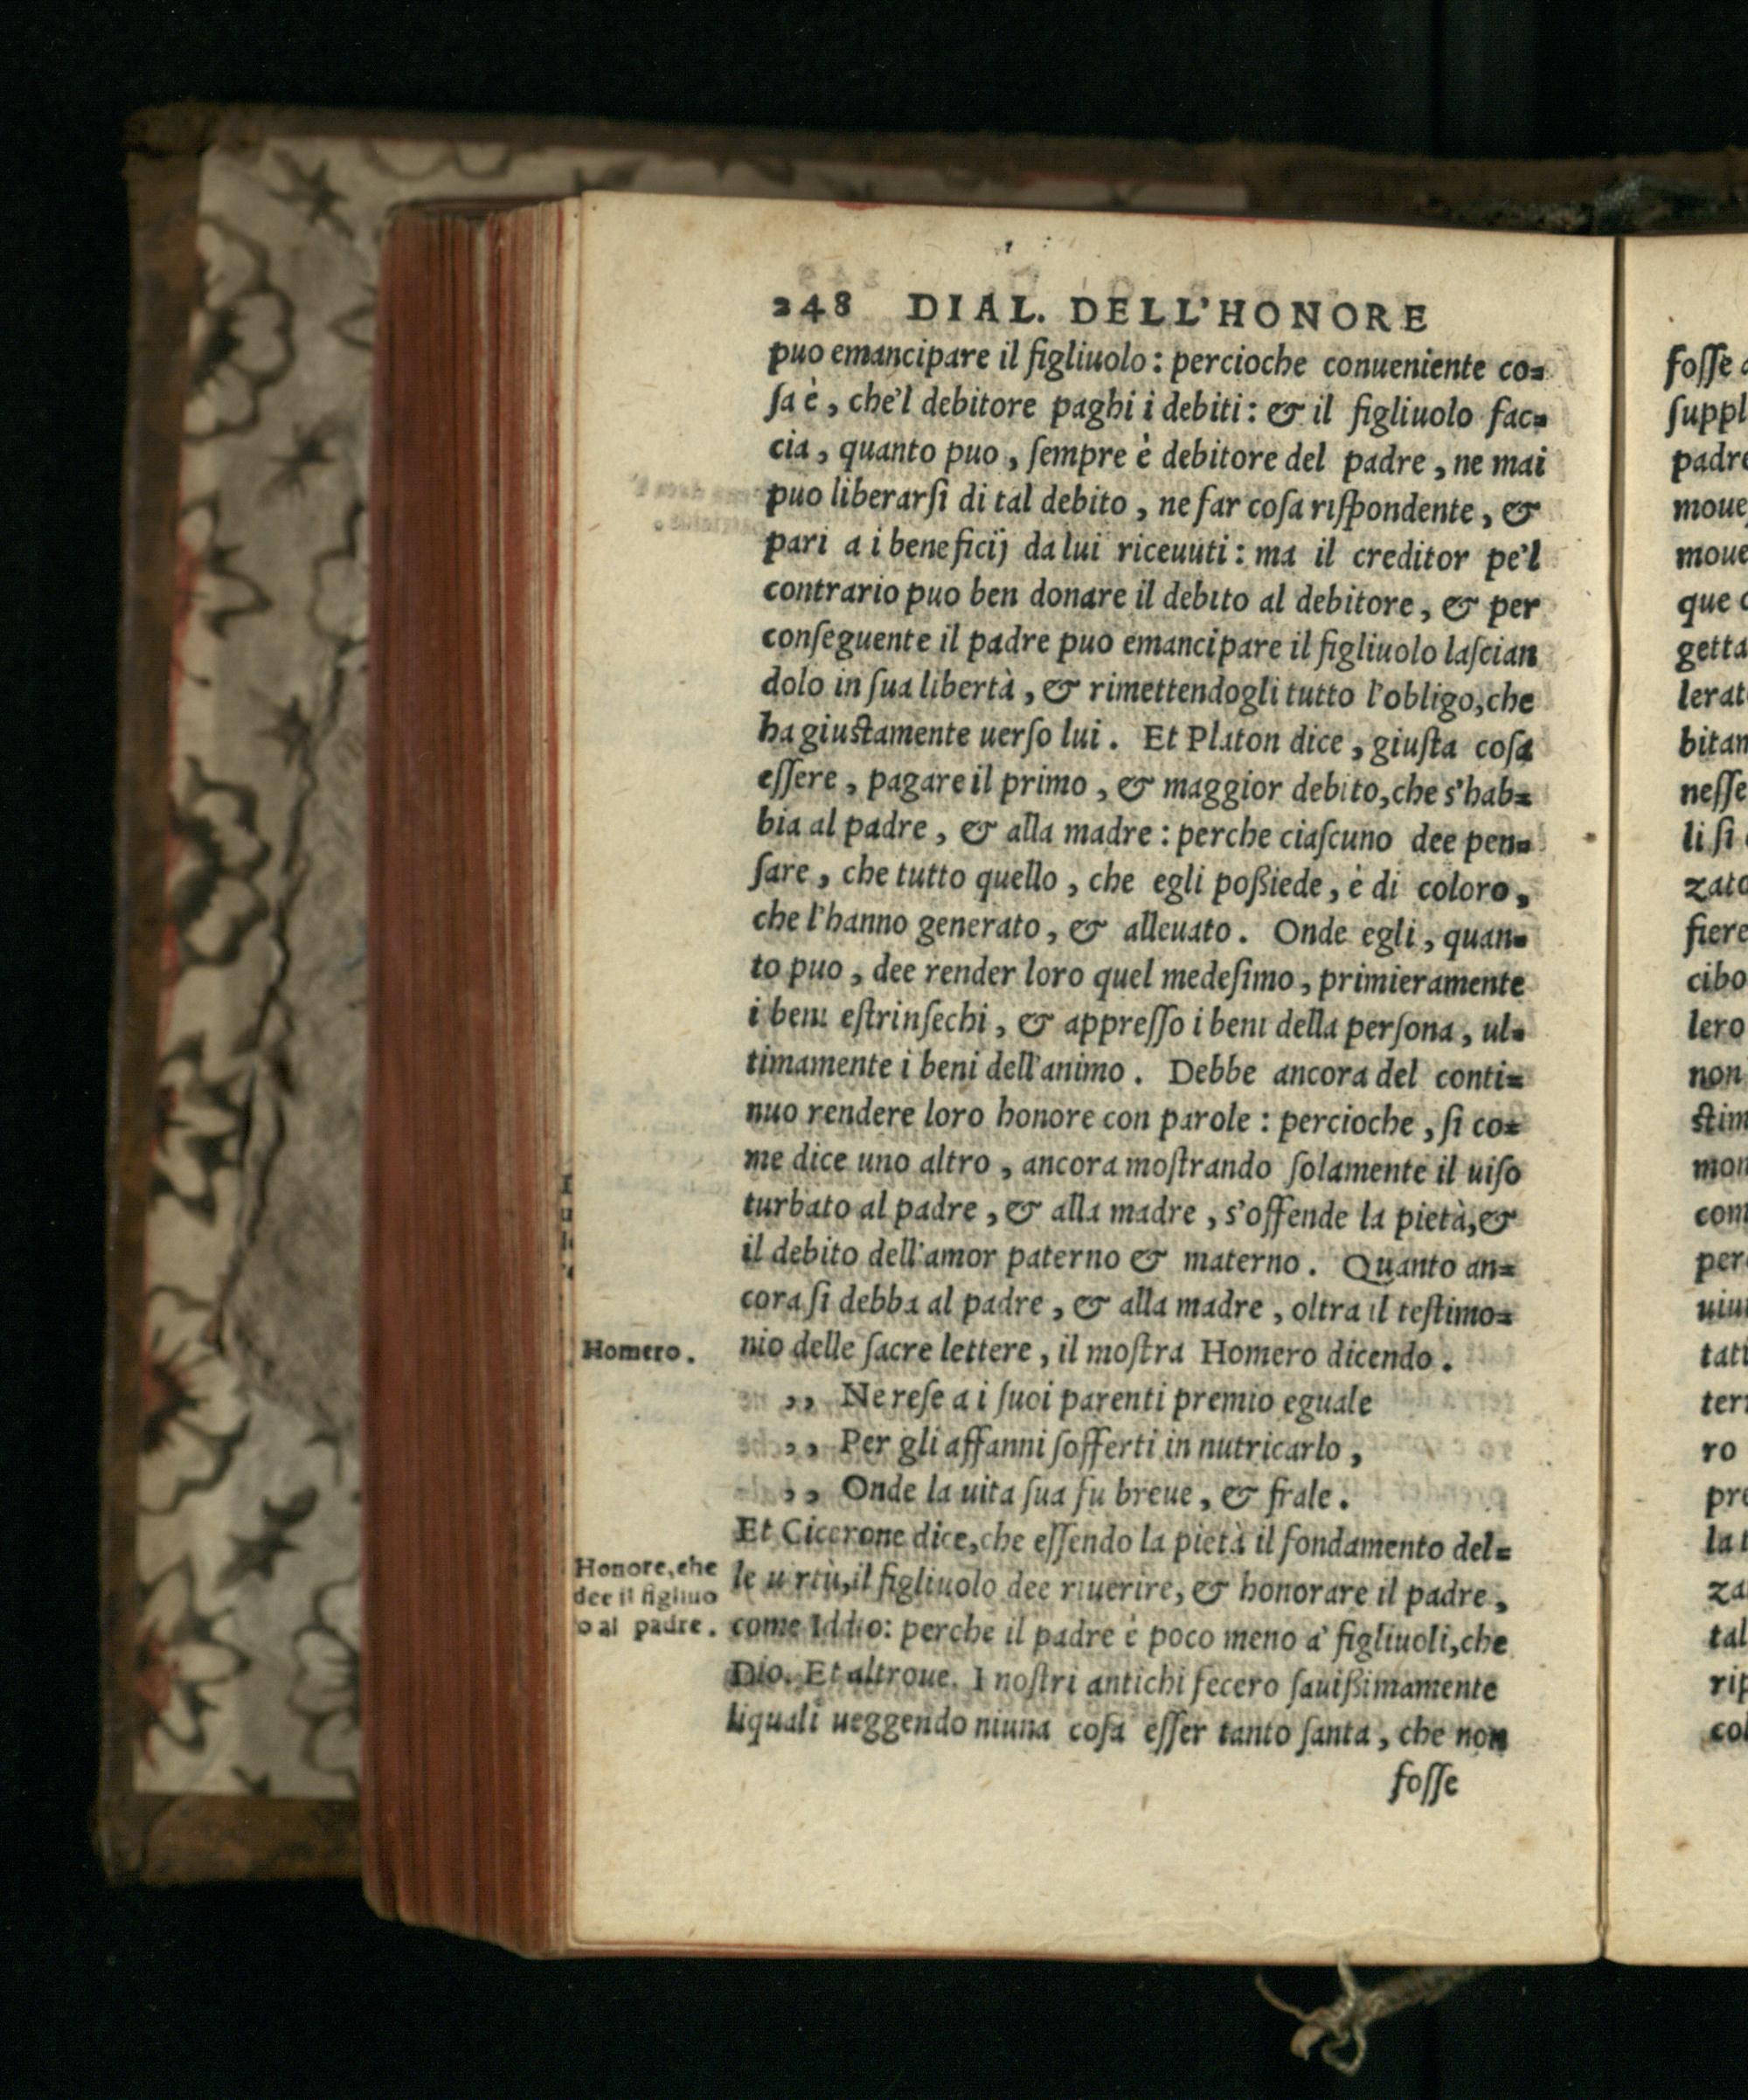 248 DIAL. DELL'HONORE
puo emancipare il figliuolo: percioche conueniente co=
ſa è, che'l debitore paghi i debiti: & il figliuolo fac=
cia, quanto puo, ſempre è debitore del padre, ne mai
puo liberarſi di tal debito, ne far coſa riſpondente, &
pari a i beneficij da lui riceuuti: ma il creditor pe'l
contrario puo ben donare il debito al debitore, & per
conſeguente il padre puo emancipare il figliuolo laſcian
dolo in ſua libertà, & rimettendogli tutto l'obligo, che
ha giuſtamente uerſo lui. Et Platon dice, giuſta coſa
eſſere, pagare il primo, & maggior debito, che s'hab=
bia al padre, & alla madre: perche ciaſcuno dee pen=
ſare, che tutto quello, che egli poßiede, è di coloro,
che l'hanno generato, & alleuato. Onde egli, quan=
to puo, dee render loro quel medeſimo, primieramente
i beni eſtrinſechi, & appreſſo i beni della perſona, ul=
timamente i beni dell'animo. Debbe ancora del conti=
nuo rendere loro honore con parole: percioche, ſi co=
me dice uno altro, ancora moſtrando ſolamente il uiſo
turbato al padre, & alla madre, s'offende la pietà, &
il debito dell'amor paterno & materno. Quanto an=
cora ſi debba al padre, & alla madre, oltra il teſtimo=
Homero.
nio delle ſacre lettere, il moſtra Homero dicendo.
,, Ne reſe a i ſuoi parenti premio eguale
,, Per gli affanni ſofferti in nutricarlo,
,, Onde la uita ſua fu breue, & frale.
Et Cicerone dice, che eſſendo la pietà il fondamento del=
Honore, che
dee il figliuo
o al padre.
le u rtù, il figliuolo dee riuerire, & honorare il padre,
come Iddio: perche il padre è poco meno a' figliuoli, che
Dio. Et altroue. I noſtri antichi fecero ſauißimamente
liquali ueggendo niuna coſa eſſer tanto ſanta, che non
foſſe
foſſe
ſuppl
padre
moue
moue
que
getta
lerat
bitan
neſſe
li ſi
zato
fiere
cibo
lero
non
ſtim
mon
com
per
uiu
tati
ter
ro
pre
la
za
tal
rip
col